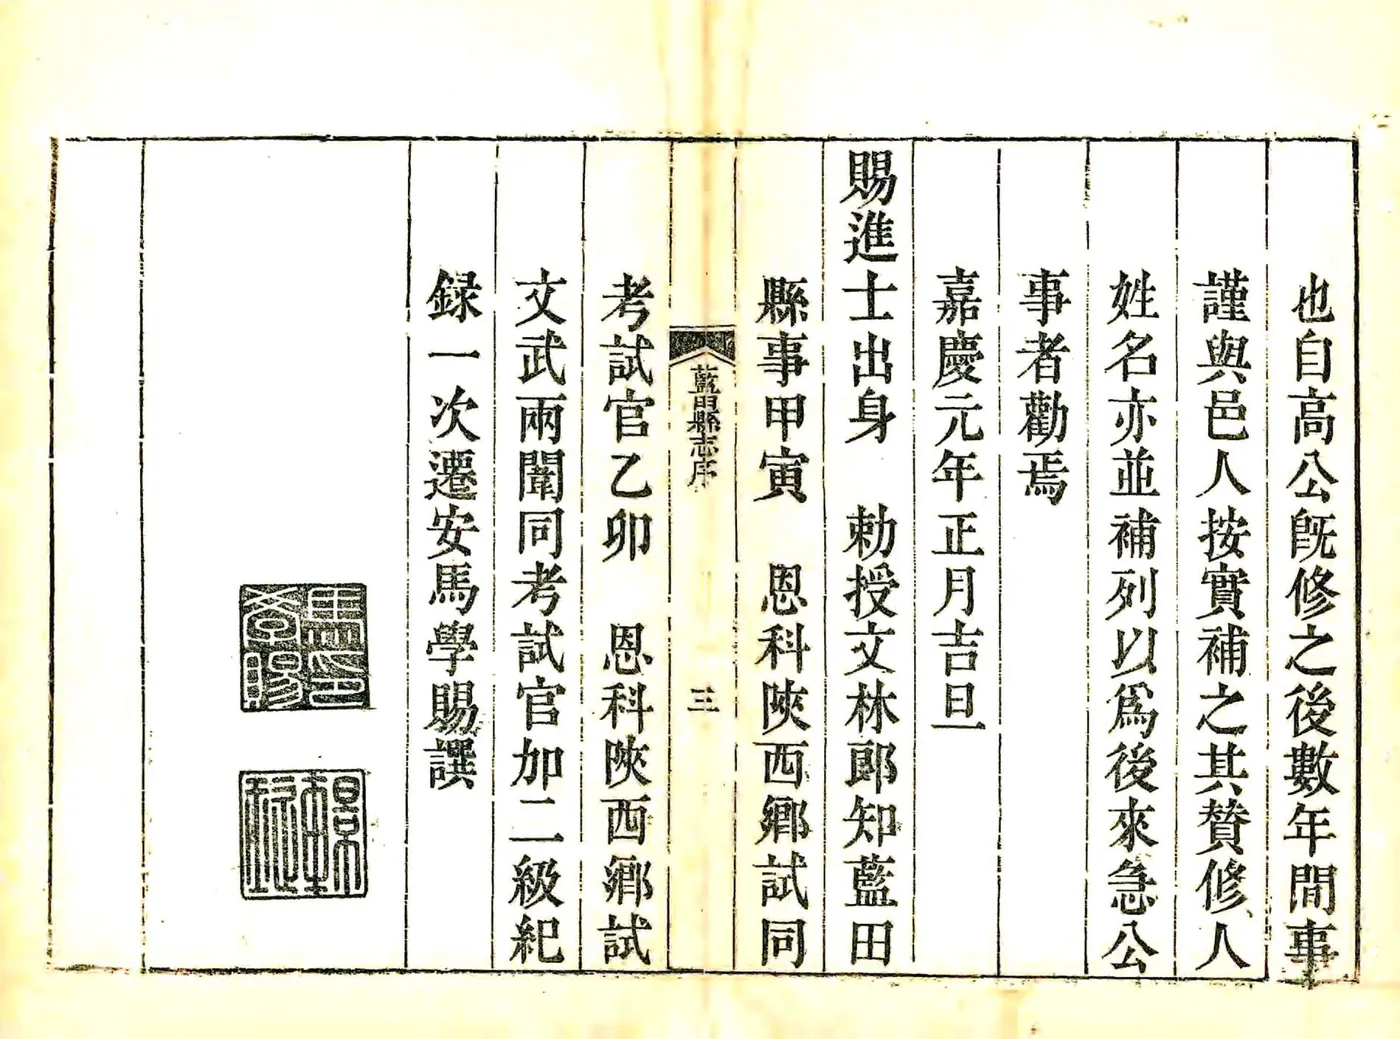 也自高公旣修之後數年間事
謹與邑人按實補之其贊修人
姓名亦並補列以爲後來急公
事者勸焉
嘉慶元年正月吉旦
賜進士出身　勅授文林郎知藍田
縣事甲寅　恩科陝西鄉試同
藍田縣志序
三
考試官乙卯　恩科陝西鄉試
文武兩闈同考試官加二級紀
録一次遷安馬學賜譔
馬學賜印